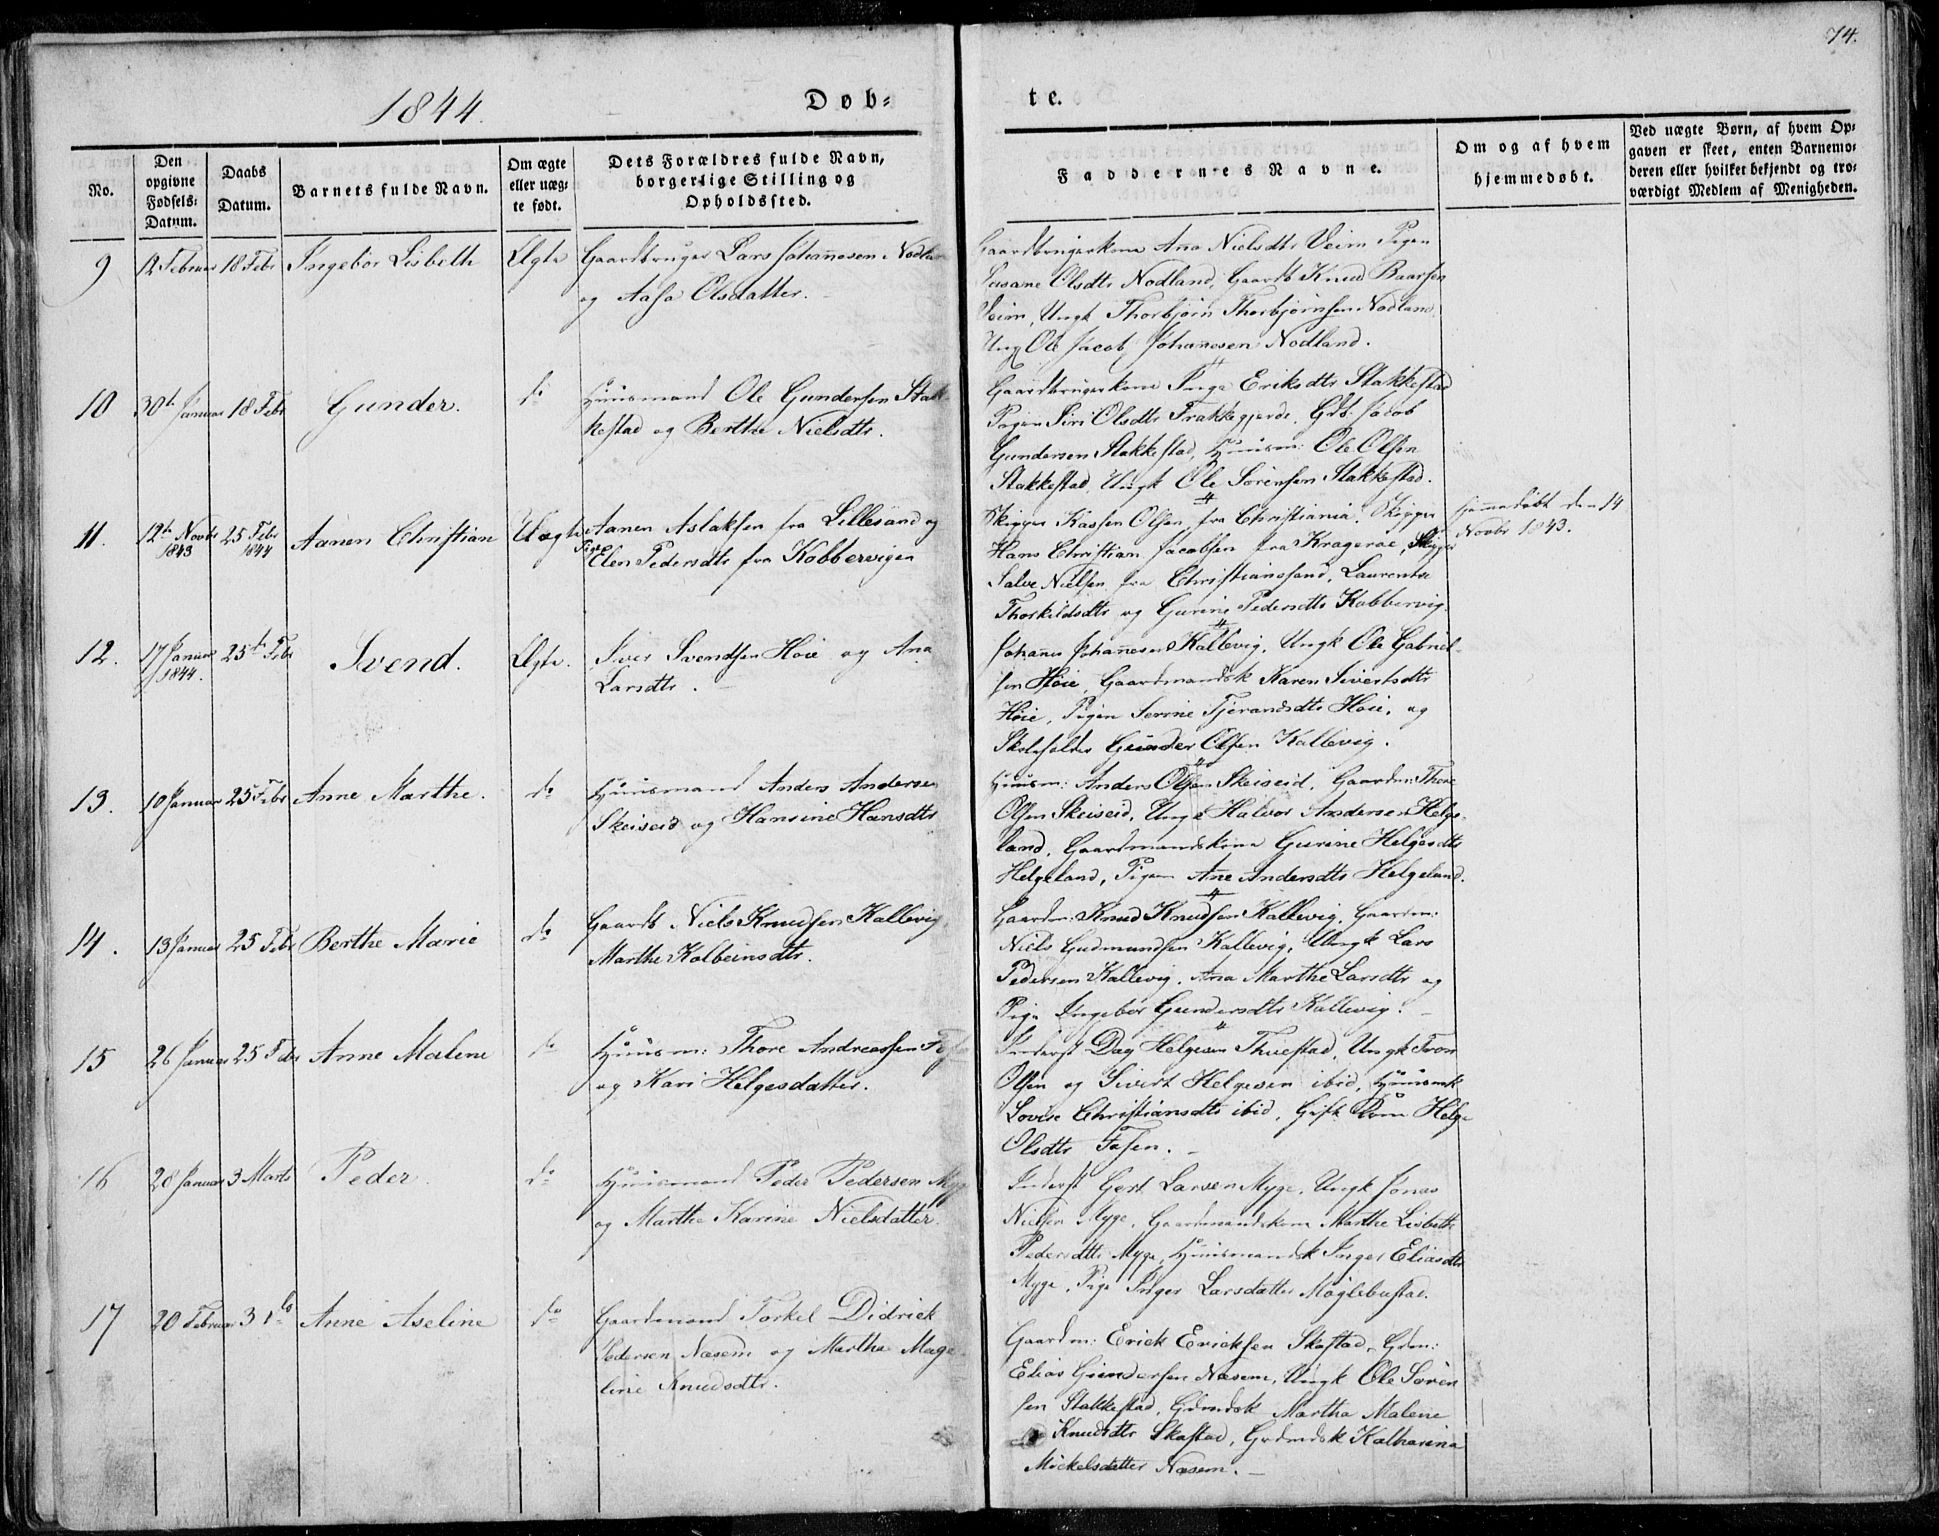 74.
1844.
Døb-
te.
No.
Den opgivne Fødsels-Datum.
Daabs Datum.
Barnets fulde Navn.
Om ægte eller uægte født.
Dets Forældres fulde Navn, borgerlige Stilling og Opholdssted.
Faddernes Navne.
Om og af hvem hjemmedøbt.
Ved uægte Børn, af hvem Opgaven er skeet, enten Barnemoderen eller hvilket bekjendt og troværdigt Medlem af Menigheden.
9 12 Februar 18 Febr Ingebor Lisbeth Ægte Gaardbruger Lars Johannesen Nodland
og Aasa Olsdatter.
Gaardbrugerkone Ana Nielsdtr Veim Pigen
Susane Olsdtr Nodland, Gaardb Knud Baarsen
Seim, Ungk Thorbjørn Thorbjørnsen Nodland,
Ungk Ole Jacob Johannesen Nodland.
10 30te Januar 18 Febr Gunder. do Huusmand Ole Gundersen Stak-
kestad og Berthe Nielsdtr.
Gaardbrugerkone Inge Eriksdtr Stakkestad
Pigen Siri Olsdtr Frakkegjerde, Grb. Jacob
Gundersen Stakkestad, Huusm: Ole Olsen
Stakkestad, Ungk Ole Sørensen Stakkestad.
11. 12te Novbr 1843 25 Febr 1844 Aanen Christian Uægte Aanen Aslaksen fra Lillesand og
Pige Elen Pedersdtr fra Kobbervigen
Skipper Kassen Olsen, fra Christiania, Skipper
Hans Christian Jacobsen fra Kragerøe, Skipper
Salve Nielsen fra Christianssand, Laurentse
Thorkildsdtr og Gurine Pedersdtr Kobbervig.
Hjemmedøbt den 14
Novbr 1843.
12. 17 Januar 1844. 25de Febr Svend. Ægte. Siver Svendsen Høie og Ana
Larsdtr.
Johanes Johannesen Kallevig, Ungk Ole Gabriel-
sen Høie, Gaardmandsk Karen Sivertsdtr
Høie, Pigen Serine Tjerandsdtr Høie, og
Skoleholder Gunder Olsen Kallevig.
13. 10 Januar 25 Febr Anne Marthe. do Huusmand Anders Andersen
Skeiseid og Hansine Hansdtr
Huusm: Anders Olsen Skeiseid, Gaardm: Thore
Olsen Skeiseid, Ungk Halvor Andersen Helge-
land, Gaardmandskone Gurine Helgesdtr
Helgeland, Pigen Ane Andersdtr Helgeland.
14. 13 Januar 25 Febr Berthe Marie do Gaardb Niels Knudsen Kallevig
Marthe Kolbeinsdtr.
Gaardm: Knud Knudsen Kallevig, Gaardm:
Niels Gudmundsen Kallevig, Ungk Lars
Pedersen Kallevig, Ana Marthe Larsdtr og
Pige Ingebor Gundersdtr Kallevig.
15 26 Januar 25 Febr Anne Malene do Huusm: Thore Andreassen
og Kari Helgesdatter.
Inderst Dag Helgesen Thuestad, Ungk Tron
Olsen og Sivert Helgesen ibid, Huusmk
Lovise Christiansdtr ibid, Gift Kone Helge
Olsdtr Fosen.
16 28 Januar 3 Marts Peder. do Huusmand Peder Pedersen Myge
og Marthe Karine Nielsdatter.
Inderst Gert Larsen Myge, Ungk Jonas
Nielsen Myge, Gaardmandskone Marthe Lisbeth
Pedersdtr Myge, Huusmandsk Inger Eliasdtr
Myge, Pige Inger Larsdatter Møglebustad.
17 20 Februar 3 do Anne Aseline do Gaardmand Torkel Didrick
Pedersen Næsem og Martha Mage-
line Knudsdtr.
Gaardm: Erick Ericksen Skastad, Grdm:
Elias Gundersen Næsem, Ungk Ole Søren-
sen Stakkestad, Grmdsk Martha Malene
Knudsdtr Skastad, Grdmdsk Katharina
Mickelsdatter Næsem.